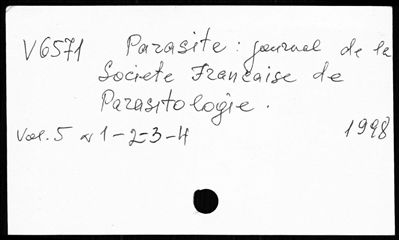 V6571 Parasite : journal de la
Societe Francaise de
Parasitologie.
Vol. 5 n 1-2-3-4 1998